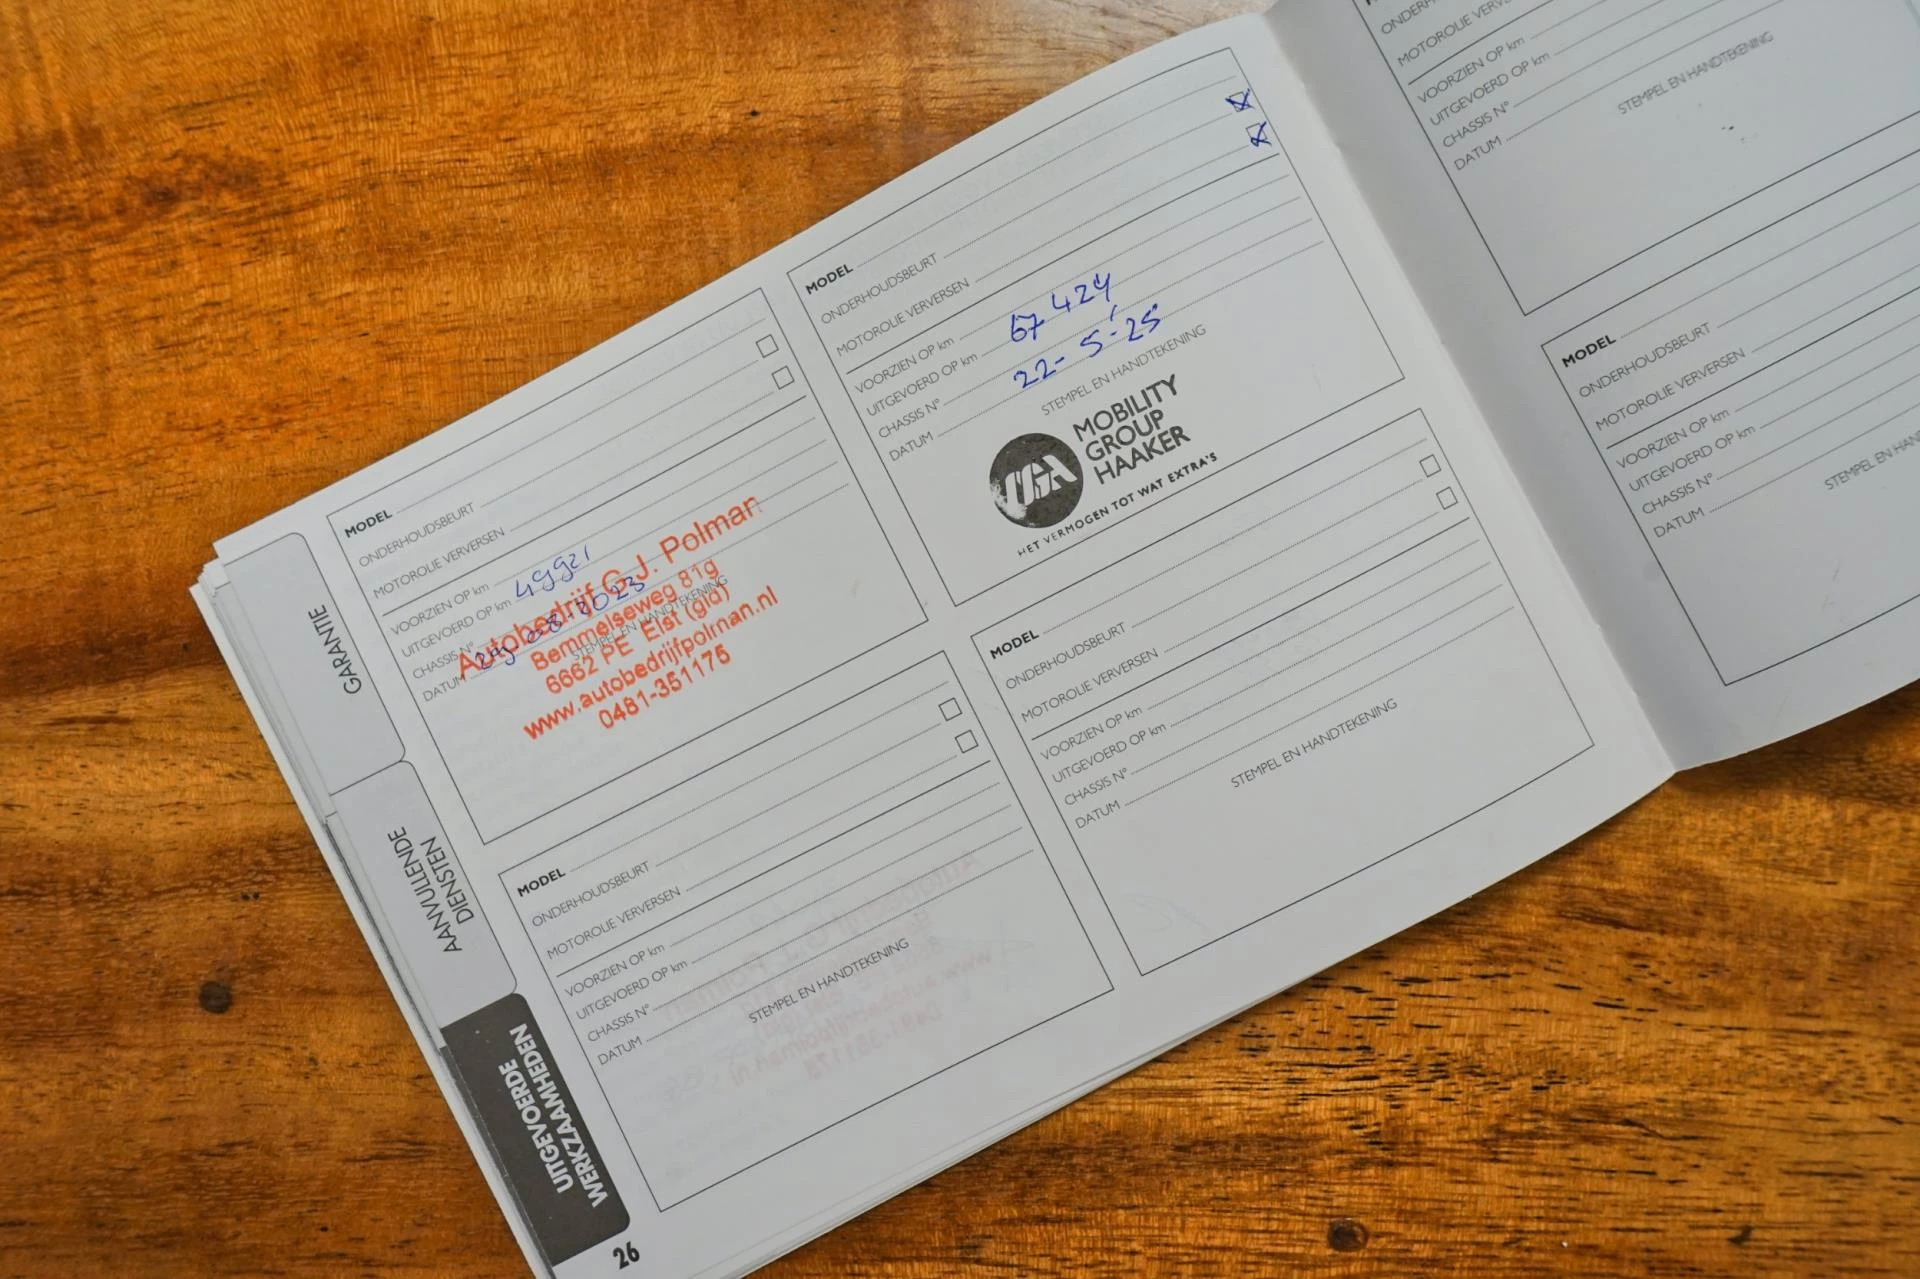 GARANTIE
AANVULLENDE
DIENSTEN
UITGEVOERDE
WERKZAAMHEDEN
26
MODEL
ONDERHOUDSBEURT
MOTOROLIE VERVERSEN
VOORZIEN OP km
UITGEVOERD OP km 49921
CHASSIS N°
DATUM 29-08-2023
STEMPEL EN HANDTEKENING
Autobedrijf G.J. Polman
Bemmelseweg 81g
6662 PE Elst (gld)
www.autobedrijfpolman.nl
0481-351175
MODEL
ONDERHOUDSBEURT
MOTOROLIE VERVERSEN
VOORZIEN OP km
UITGEVOERD OP km
CHASSIS N°
DATUM
STEMPEL EN HANDTEKENING
MODEL
ONDERHOUDSBEURT
MOTOROLIE VERVERSEN
VOORZIEN OP km
UITGEVOERD OP km 67424
CHASSIS N°
DATUM 22-5-'25
STEMPEL EN HANDTEKENING
MOBILITY
GROUP
HAAKER
HET VERMOGEN TOT WAT EXTRA'S
MODEL
ONDERHOUDSBEURT
MOTOROLIE VERVERSEN
VOORZIEN OP km
UITGEVOERD OP km
CHASSIS N°
DATUM
STEMPEL EN HANDTEKENING
MOTOROLIE
VOORZIEN OP km
UITGEVOERD OP km
CHASSIS N°
DATUM
STEMPEL EN HANDTEKENING
MODEL
ONDERHOUDSBEURT
MOTOROLIE VERVERSEN
VOORZIEN OP km
UITGEVOERD OP km
CHASSIS N°
DATUM
STEMPEL EN